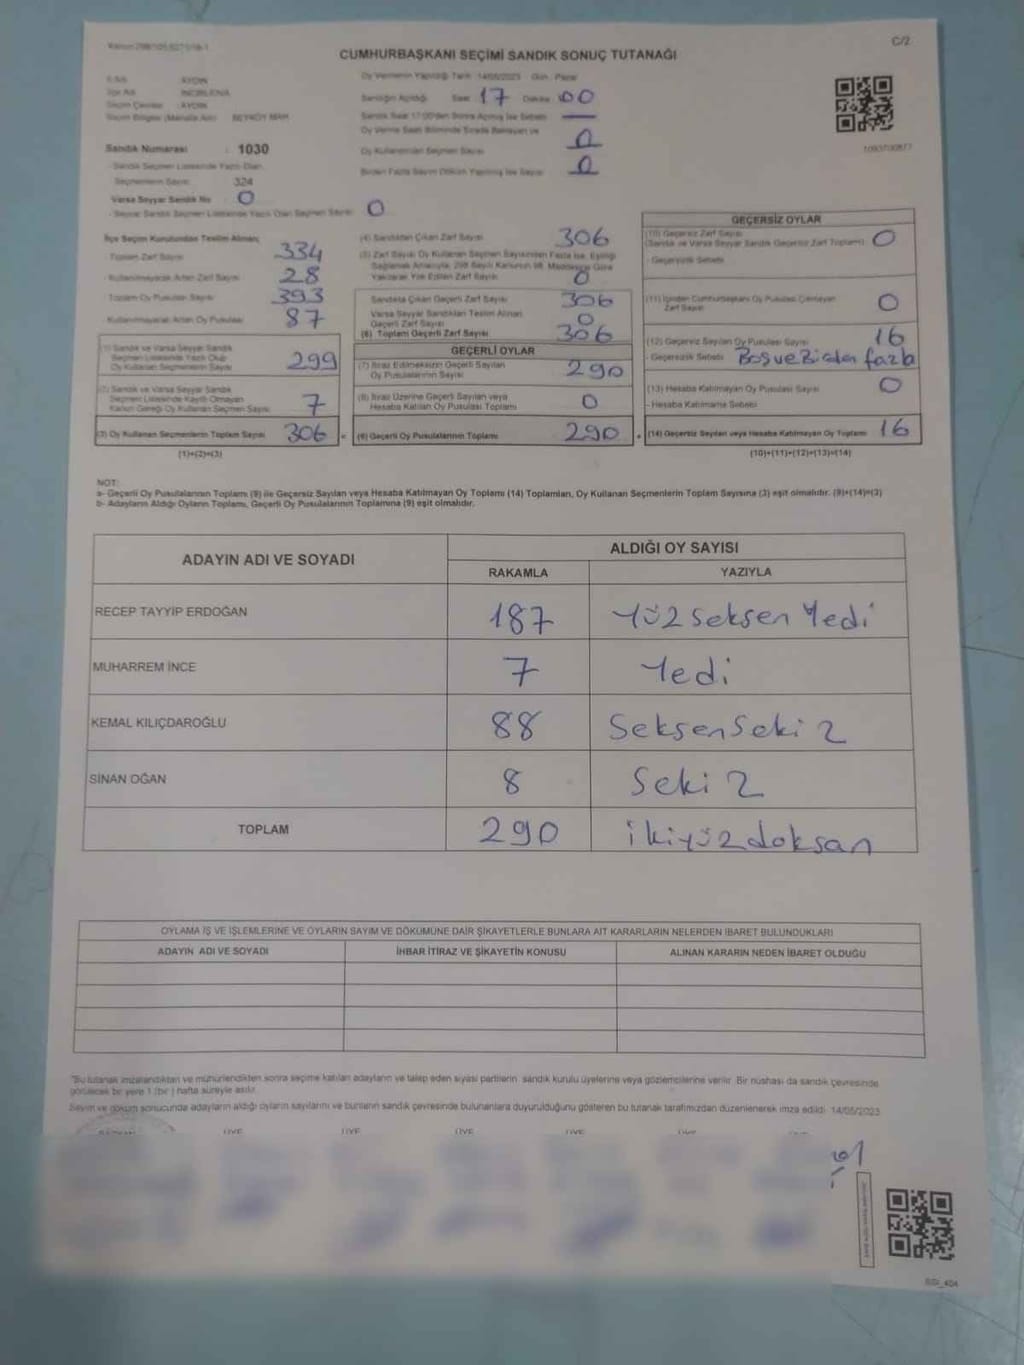 Kanun:298/105,6271/18-1
C/2
CUMHURBAŞKANI SEÇİMİ SANDIK SONUÇ TUTANAĞI
İl Adı : AYDIN
İlçe Adı : İNCİRLİOVA
Seçim Çevresi : AYDIN
Seçim Bölgesi (Mahalle Adı) : BEYKÖY MAH.
Sandık Numarası : 1030
- Sandık Seçmen Listesinde Yazılı Olan
Seçmenlerin Sayısı : 324
Varsa Seyyar Sandık No : 0
- Seyyar Sandık Seçmen Listesinde Yazılı Olan Seçmen Sayısı : 0
Oy Vermenin Yapıldığı Tarih : 14/05/2023 Gün : Pazar
Sandığın Açıldığı Saat 17 Dakika 00
Sandık Saat 17:00'den Sonra Açılmış İse Sebebi —
Oy Verme Saati Bitiminde Sırada Bekleyen ve
Oy Kullanan Seçmen Sayısı 0
Birden Fazla Sayım Döküm Yapılmış İse Sayısı 0
İlçe Seçim Kurulundan Teslim Alınan;
- Toplam Zarf Sayısı 334
- Kullanılmayarak Artan Zarf Sayısı 28
- Toplam Oy Pusulası Sayısı 393
- Kullanılmayarak Artan Oy Pusulası 87
(1) Sandık ve Varsa Seyyar Sandık
Seçmen Listesinde Yazılı Olup
Oy Kullanan Seçmenlerin Sayısı 299
(2) Sandık ve Varsa Seyyar Sandık
Seçmen Listesinde Kayıtlı Olmayan
Kanun Gereği Oy Kullanan Seçmen Sayısı 7
(3) Oy Kullanan Seçmenlerin Toplam Sayısı 306 =
(1)+(2)=(3)
(4) Sandıktan Çıkan Zarf Sayısı 306
(5) Zarf Sayısı Oy Kullanan Seçmen Sayısından Fazla İse, Eşitliği
Sağlamak Amacıyla, 298 Sayılı Kanunun 98. Maddesine Göre
Yakılarak Yok Edilen Zarf Sayısı 0
Sandıkta Çıkan Geçerli Zarf Sayısı 306
Varsa Seyyar Sandıktan Teslim Alınan
Geçerli Zarf Sayısı 0
(6) Toplam Geçerli Zarf Sayısı 306
GEÇERLİ OYLAR
(7) İtiraz Edilmeksizin Geçerli Sayılan
Oy Pusulalarının Sayısı 290
(8) İtiraz Üzerine Geçerli Sayılan veya
Hesaba Katılan Oy Pusulası Toplamı 0
(9) Geçerli Oy Pusulalarının Toplamı 290 +
GEÇERSİZ OYLAR
(10) Geçersiz Zarf Sayısı
(Sandık ve Varsa Seyyar Sandık Geçersiz Zarf Toplamı) 0
- Geçersizlik Sebebi
(11) İçinden Cumhurbaşkanı Oy Pusulası Çıkmayan
Zarf Sayısı 0
(12) Geçersiz Sayılan Oy Pusulası Sayısı 16
- Geçersizlik Sebebi Boş ve Birden fazla
(13) Hesaba Katılmayan Oy Pusulası Sayısı 0
- Hesaba Katılmama Sebebi
(14) Geçersiz Sayılan veya Hesaba Katılmayan Oy Toplamı 16
(10)+(11)+(12)+(13)=(14)
NOT:
a- Geçerli Oy Pusulalarının Toplamı (9) ile Geçersiz Sayılan veya Hesaba Katılmayan Oy Toplamı (14) Toplamları, Oy Kullanan Seçmenlerin Toplam Sayısına (3) eşit olmalıdır. (9)+(14)=(3)
b- Adayların Aldığı Oyların Toplamı, Geçerli Oy Pusulalarının Toplamına (9) eşit olmalıdır.
ADAYIN ADI VE SOYADI
ALDIĞI OY SAYISI
RAKAMLA YAZIYLA
RECEP TAYYİP ERDOĞAN 187 Yüz seksen Yedi
MUHARREM İNCE 7 Yedi
KEMAL KILIÇDAROĞLU 88 Seksen Sekiz
SİNAN OĞAN 8 Sekiz
TOPLAM 290 ikiyüzdoksan
OYLAMA İŞ VE İŞLEMLERİNE VE OYLARIN SAYIM VE DÖKÜMÜNE DAİR ŞİKAYETLERLE BUNLARA AİT KARARLARIN NELERDEN İBARET BULUNDUKLARI
ADAYIN ADI VE SOYADI İHBAR İTİRAZ VE ŞİKAYETİN KONUSU ALINAN KARARIN NEDEN İBARET OLDUĞU
"Bu tutanak imzalandıktan ve mühürlendikten sonra seçime katılan adayların ve talep eden siyasi partilerin sandık kurulu üyelerine veya gözlemcilerine verilir. Bir nüshası da sandık çevresinde
görülecek bir yere 1 (bir) hafta süreyle asılır.
Sayım ve döküm sonucunda adayların aldığı oyların sayılarını ve bunların sandık çevresinde bulunanlara duyurulduğunu gösteren bu tutanak tarafımızdan düzenlenerek imza edildi. 14/05/2023
BAŞKAN ÜYE ÜYE ÜYE ÜYE ÜYE